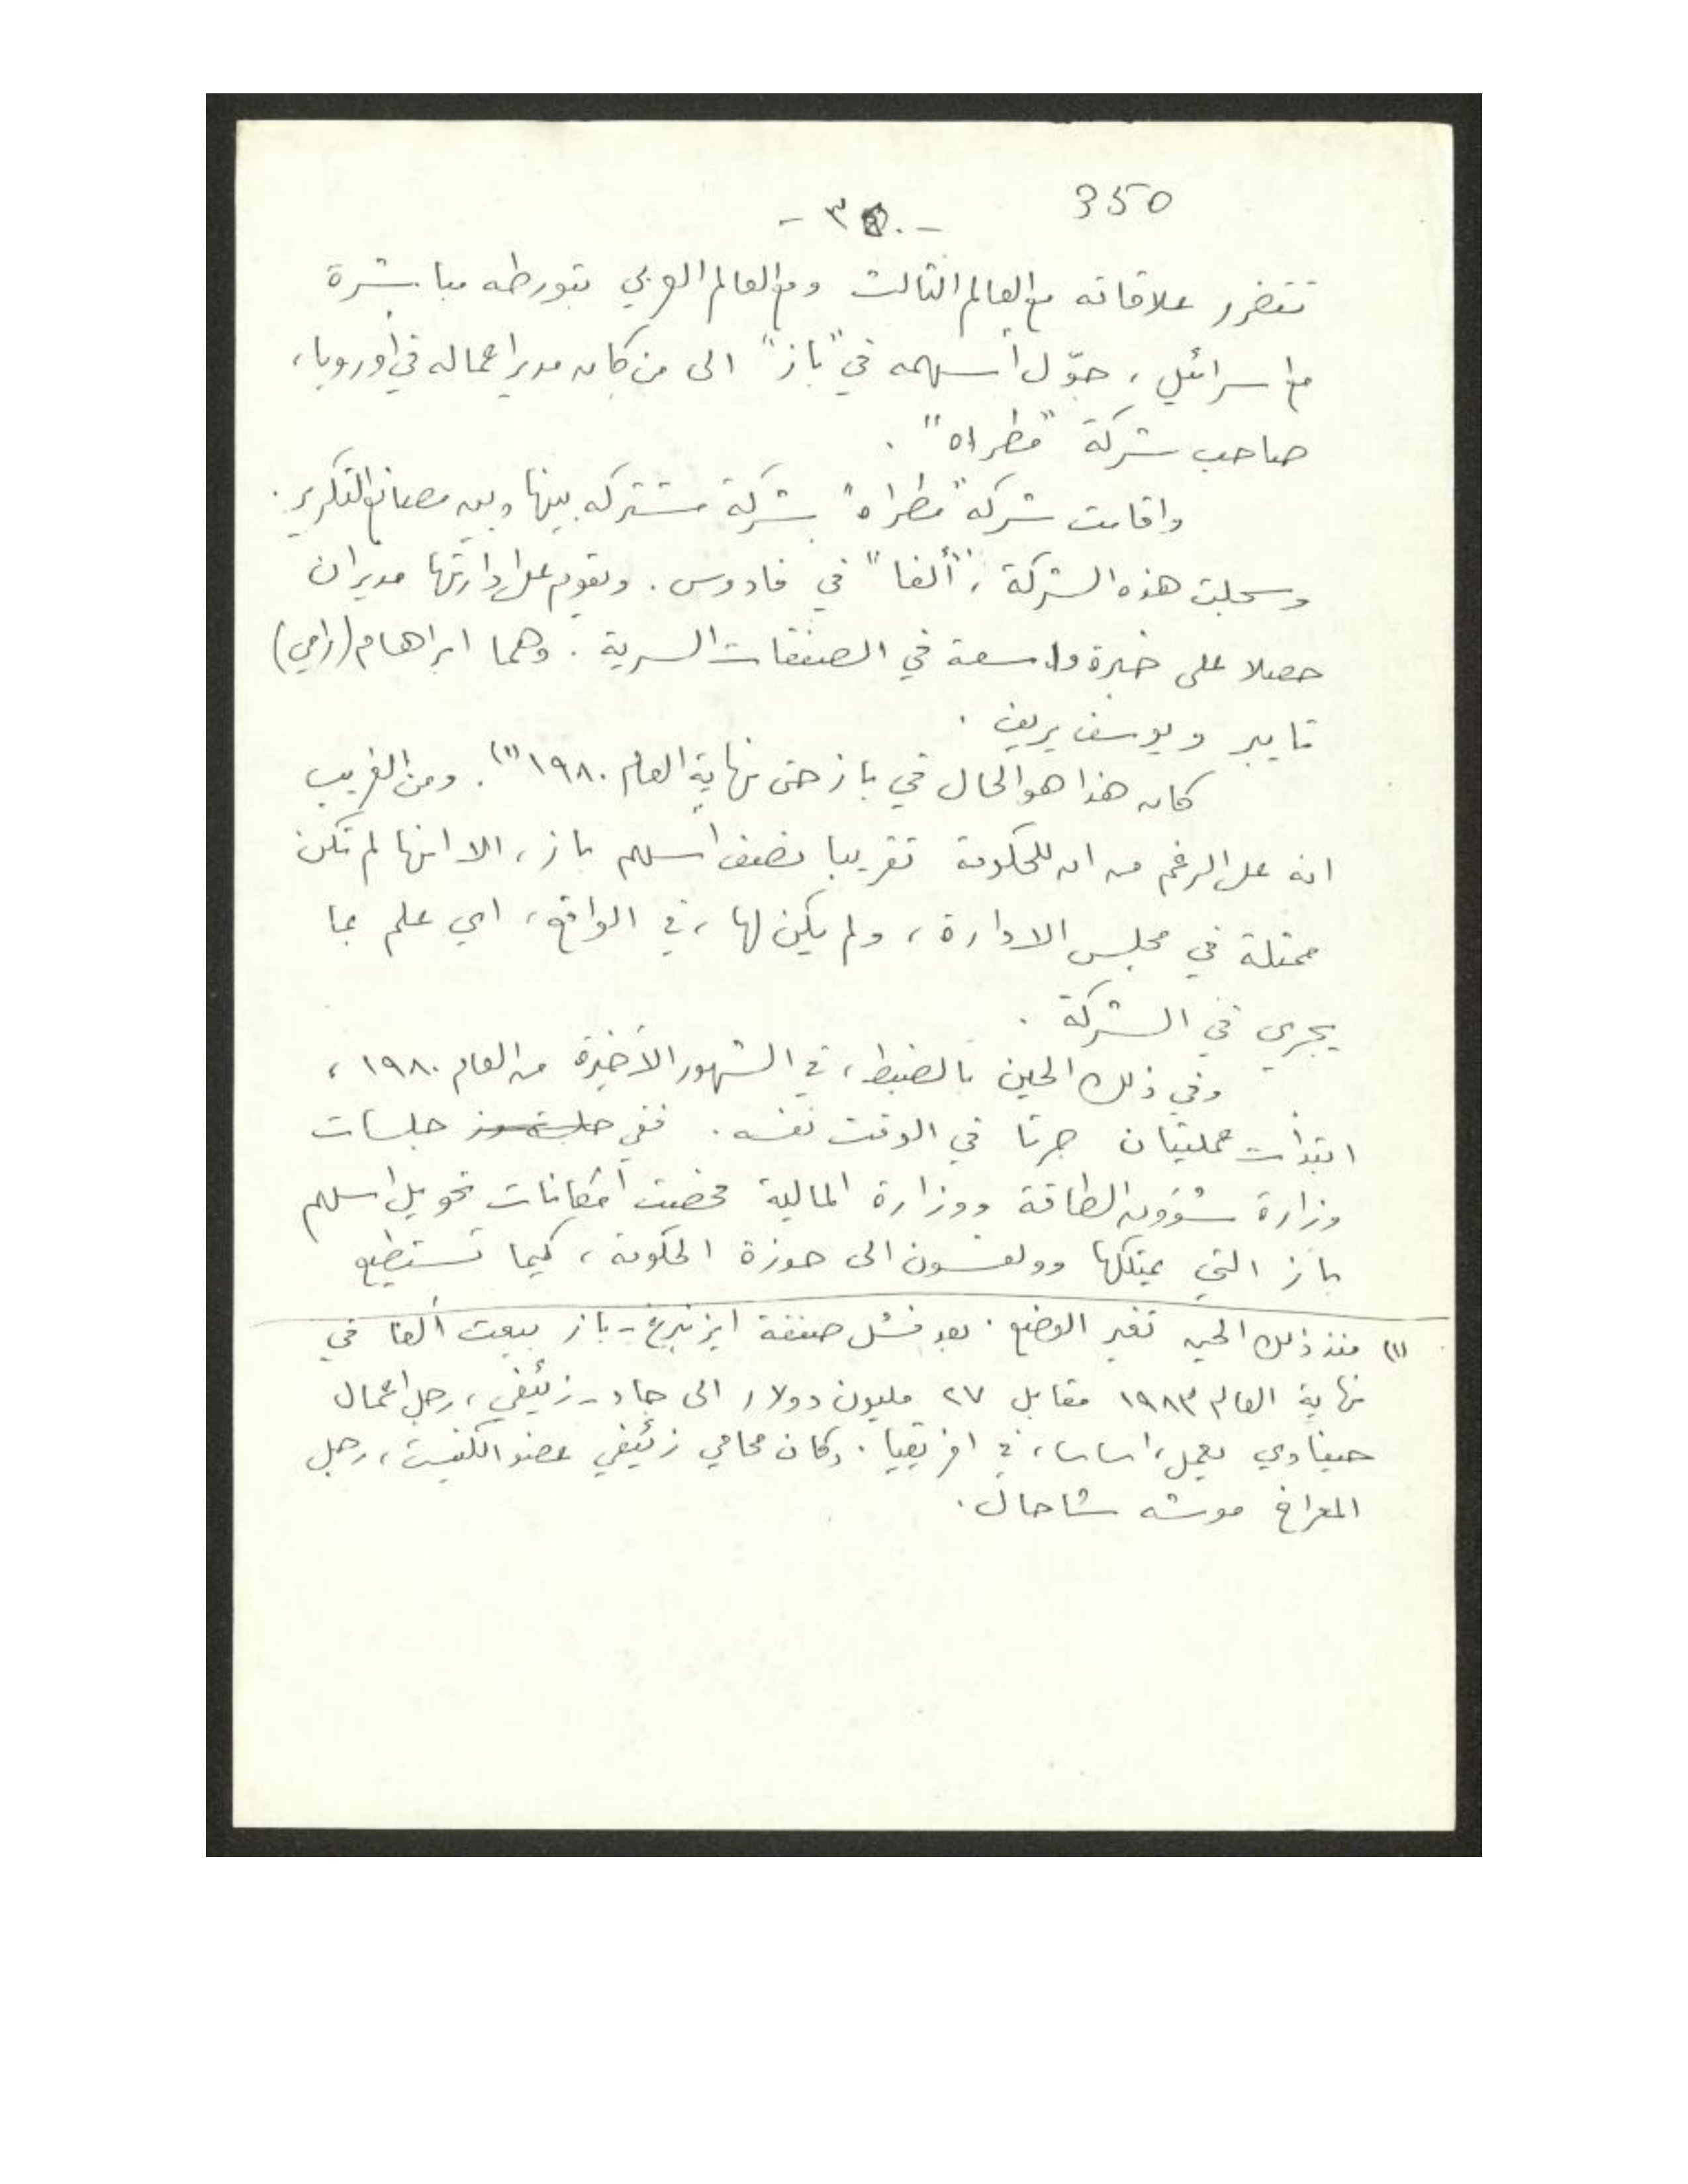 350
- ٣٥٠ -
تتضرر علاقاته مع العالم الثالث ومع العالم العربي بتورطه مباشرة
مع اسرائيل، حوّل أسهمه في "باز" الى من كان مدير اعماله في أوروبا،
صاحب شركة "مطراه".
واقامت شركة "مطراه" شركة مشتركه بينها وبين مصانع التكرير.
وسجلت هذه الشركة، "ألفا" في فادوس. ويقوم على ادارتها مديران
حصلا على خبرة واسعة في الصفقات السرية. وهما ابراهام (رامي)
تايبر ويوسف يريف.
كان هذا هو الحال في باز حتى نهاية العام ١٩٨٠(١). ومن الغريب
انه على الرغم من ان للحكومة تقريبا نصف أسهم باز، الا انها لم تكن
ممثلة في مجلس الادارة، ولم يكن لها، في الواقع، اي علم بما
يجري في الشركة.
وفي ذلك الحين بالضبط، في الشهور الأخيرة من العام ١٩٨٠،
ابتدأت عمليتان جرتا في الوقت نفسه. ففي جلسات
وزارة شؤون الطاقة ووزارة المالية فحصت امكانات تحويل اسهم
باز التي يمتلكها وولفسون الى حوزة الحكومة، كيما تستطيع
(١) منذ ذلك الحين تغير الوضع. بعد فشل صفقة ايزنبرغ - باز بيعت ألفا في
نهاية العام ١٩٨٣ مقابل ٢٧ مليون دولار الى جاد - زئيفي، رجل اعمال
حيفاوي يعمل، اساسا، في افريقيا. وكان محامي زئيفي عضو الكنيست، رجل
المعراخ موشه شاحال.